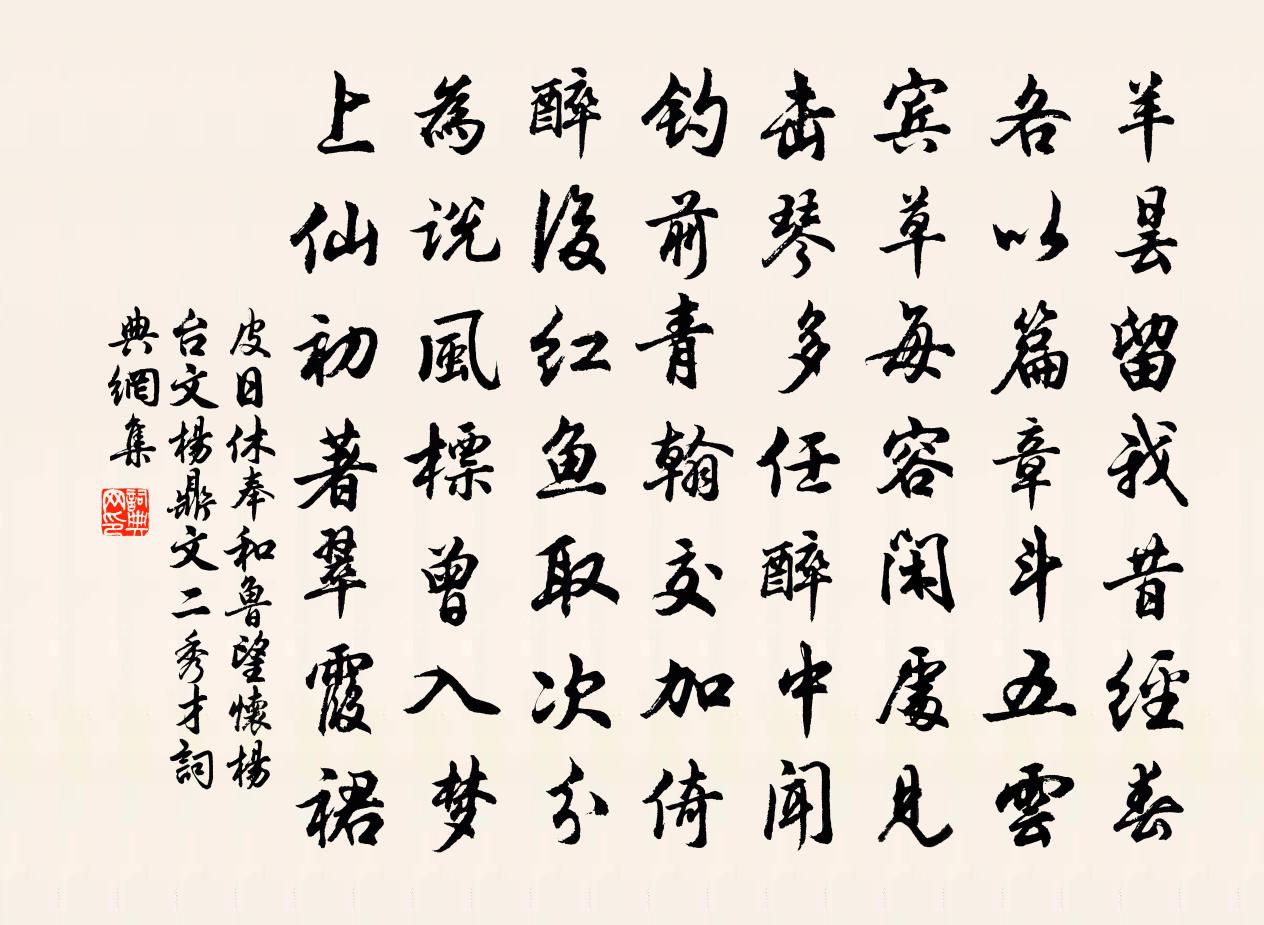 羊昙留我昔經春
各以篇章斗五雲
宾草每容闲處見
击琴多任醉中闻
钓前青翰交加倚
醉後红鱼取次分
為说風標曾入梦
上仙初著翠霞裙
皮日休奉和魯望懷楊
台文楊鼎文二秀才詞
典網集
詞典
网印